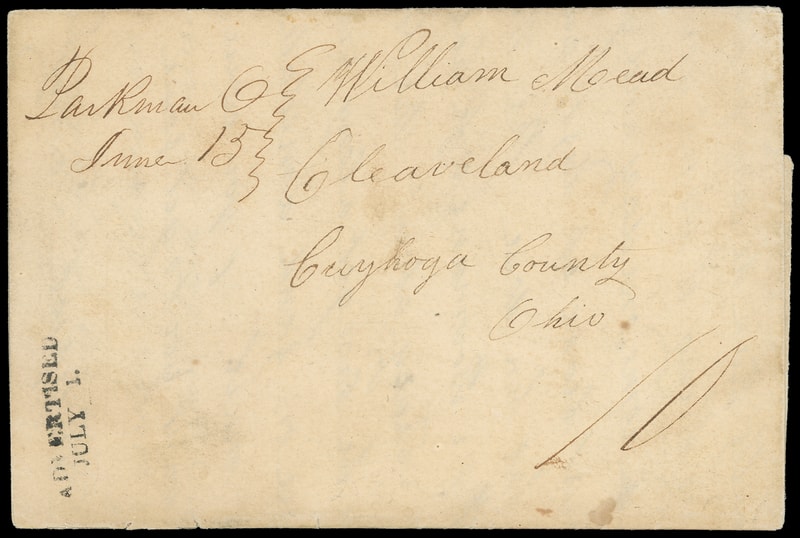 Parkman O
June 15
William Mead
Cleaveland
Cuyhoga County
Ohio
10
ADVERTISED
JULY 1.